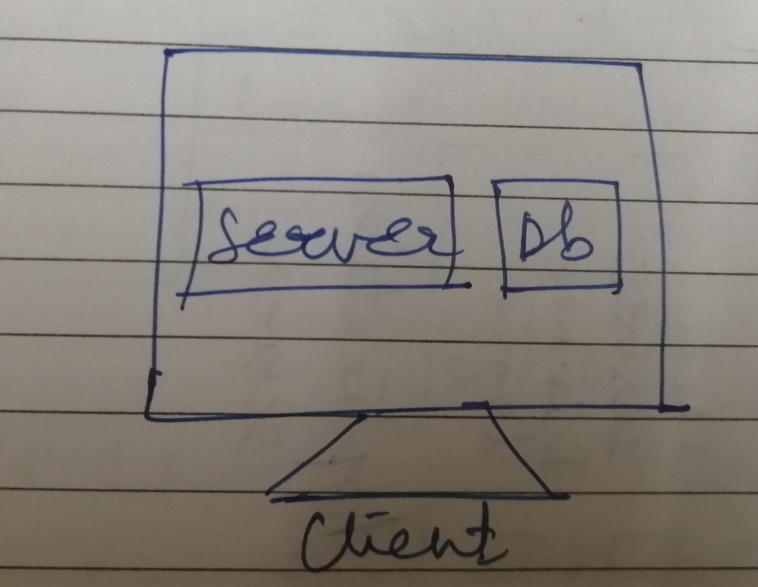 Server Db
Client